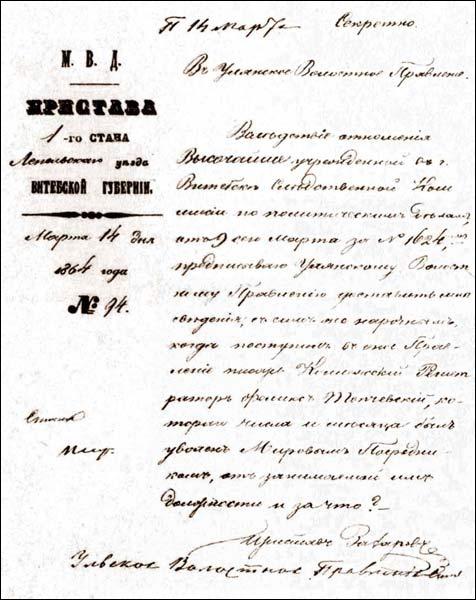 П 14 Мар
Секретно.
М. В. Д.
ПРИСТАВА
1-го СТАНА
Лепельскаго уѣзда
ВИТЕБСКОЙ ГУБЕРНІИ.
Марта 14 дня
1864 года
№ 94.
Въ Улянское Волостное Правленіе.
Вслѣдствіе отношенія
Высочайше учрежденной въ г.
Витебскѣ Слѣдственной Ком
мисіи по политическимъ дѣламъ,
отъ 9 сего Марта за № 1624,
предписываю Улянскому Волост
ному Правленію доставить мнѣ
свѣденія, съ симъ же нарочнымъ,
когда поступилъ въ оное Прав-
леніе писарь Регист
раторъ Топчевскій, ко-
тораго числа и мѣсяца былъ
уволенъ Мировымъ Посредни
комъ, отъ занимаемой имъ
должности и за что?
Приставъ
Ульское Волостное Правленіе